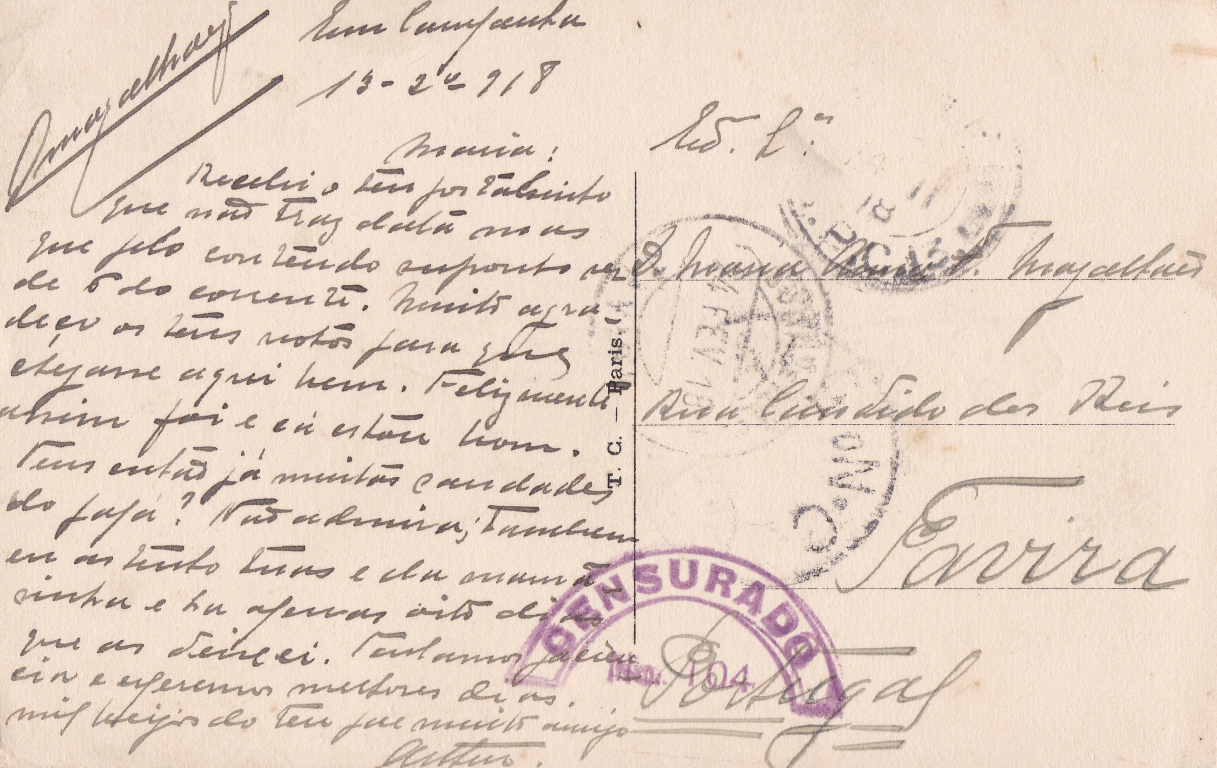 Magalhães
Em Campanha
13-2º-918
Maria:
Recebi o teu postalsinho
que não traz data mas
que pelo contendo suponho ser
de 6 do corrente. Muito agra-
deço os teus votos para que
chegasse aqui bem. Felizmente
assim foi e cá estou bom.
Tens então já muitas saudades
do papá? Não admira; tambem
eu as tenho tuas e da mamã
sinha e ha apenas oito dias
que as deixei. Tenhamos pacien
cia e esperemos melhores dias.
mil beijos do teu pae muito amigo
Arthur.
T. C. — Paris.
D. Maria Magalhães
Rua Candido dos Reis
Tavira
Portugal
CENSURADO
104
FEV 18